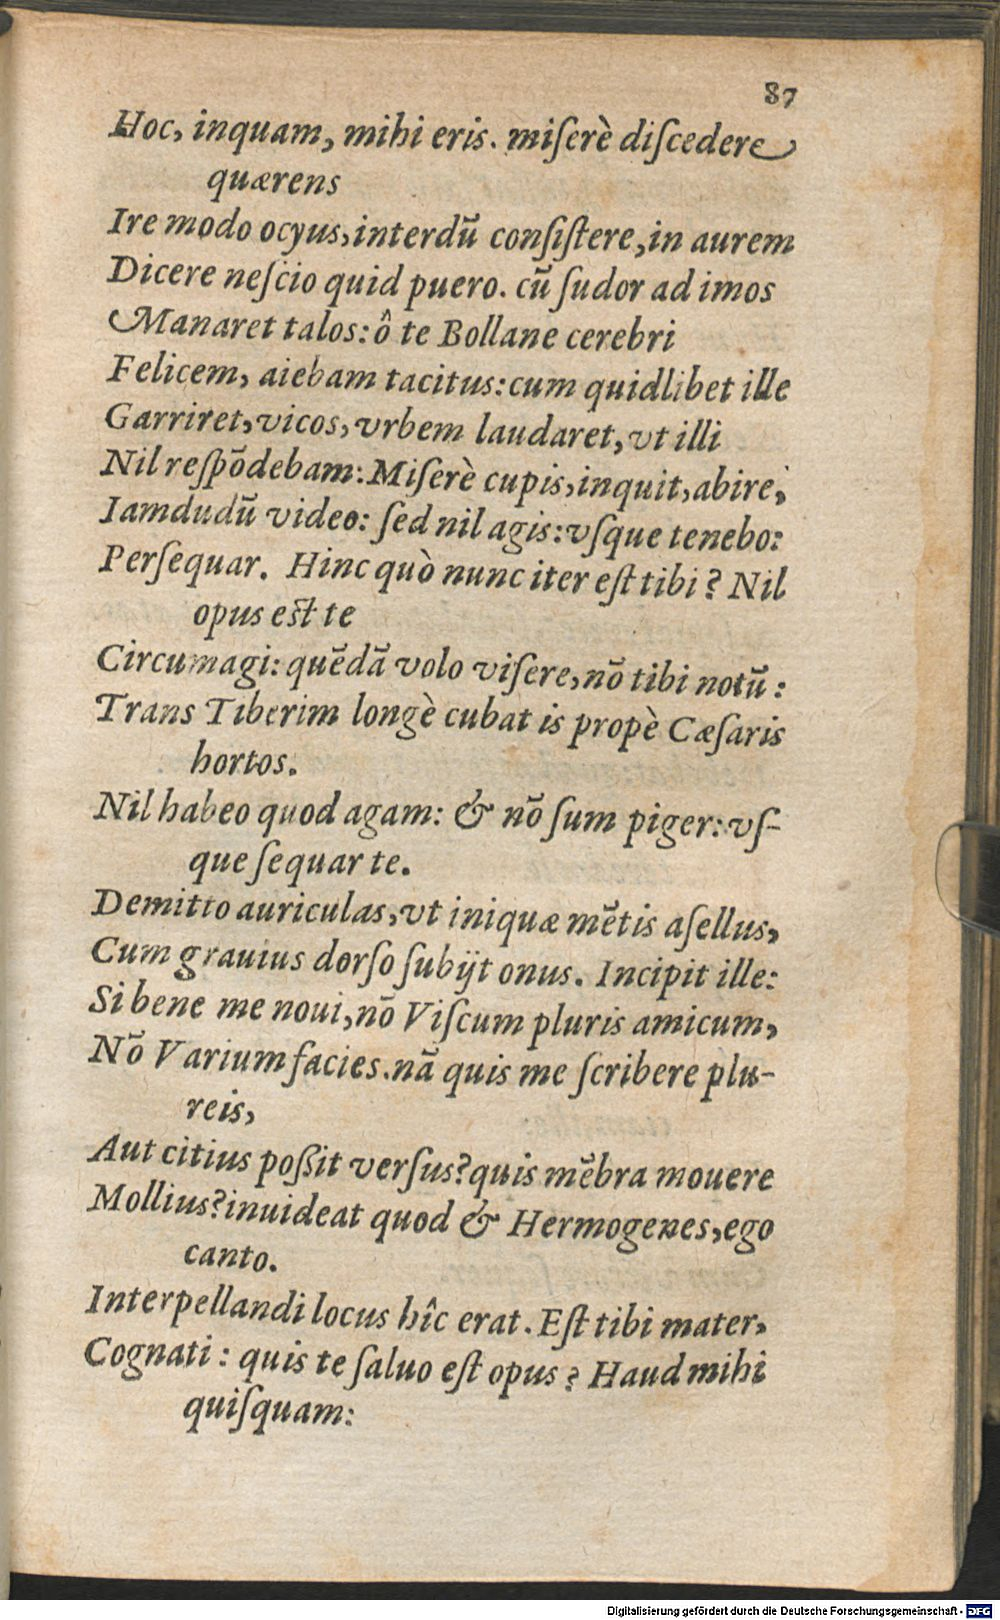 87
Hoc, inquam, mihi eris. miſerè diſcedere
quærens
Ire modo ocyus, interdū conſiſtere, in aurem
Dicere neſcio quid puero. cū ſudor ad imos
Manaret talos: ô te Bollane cerebri
Felicem, aiebam tacitus: cum quidlibet ille
Garriret, vicos, vrbem laudaret, vt illi
Nil reſpōdebam: Miſerè cupis, inquit, abire,
Iamdudū video: ſed nil agis: vſque tenebo:
Perſequar. Hinc quò nunc iter eſt tibi? Nil
opus eſt te
Circumagi: quēdā volo viſere, nō tibi notū:
Trans Tiberim longè cubat is propè Cæſaris
hortos.
Nil habeo quod agam: & nō ſum piger: vſ-
que ſequar te.
Demitto auriculas, vt iniquæ mētis aſellus,
Cum grauius dorſo ſubijt onus. Incipit ille:
Si bene me noui, nō Viſcum pluris amicum,
Nō Varium facies. nā quis me ſcribere plu-
reis,
Aut citius poßit verſus? quis mēbra mouere
Mollius? inuideat quod & Hermogenes, ego
canto.
Interpellandi locus hîc erat. Eſt tibi mater,
Cognati: quis te ſaluo eſt opus? Haud mihi
quiſquam:
Digitalisierung gefördert durch die Deutsche Forschungsgemeinschaft - DFG